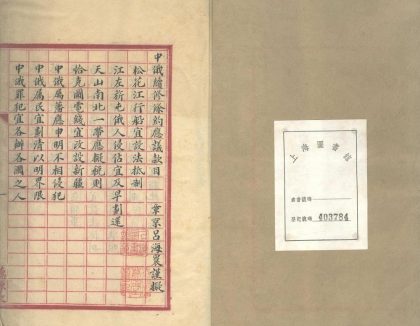 中俄續修條約應議款目
章京呂海寰謹擬
松花江行船宜設法抵制
江左新屯俄人侵佔宜及早劃還
天山南北一帶應擬稅則
恰克圖電綫宜改設新疆
中俄屬藩應申明不相侵犯
中俄屬民宜劃清以明界限
中俄罪犯宜各辦各國之人
上海圖書館
登記號碼 403784